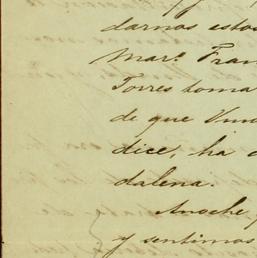 darnos estos
Mar.ª Fran
Torres toma
de que
dice, ha
dalena.
Anoche
y sentimos